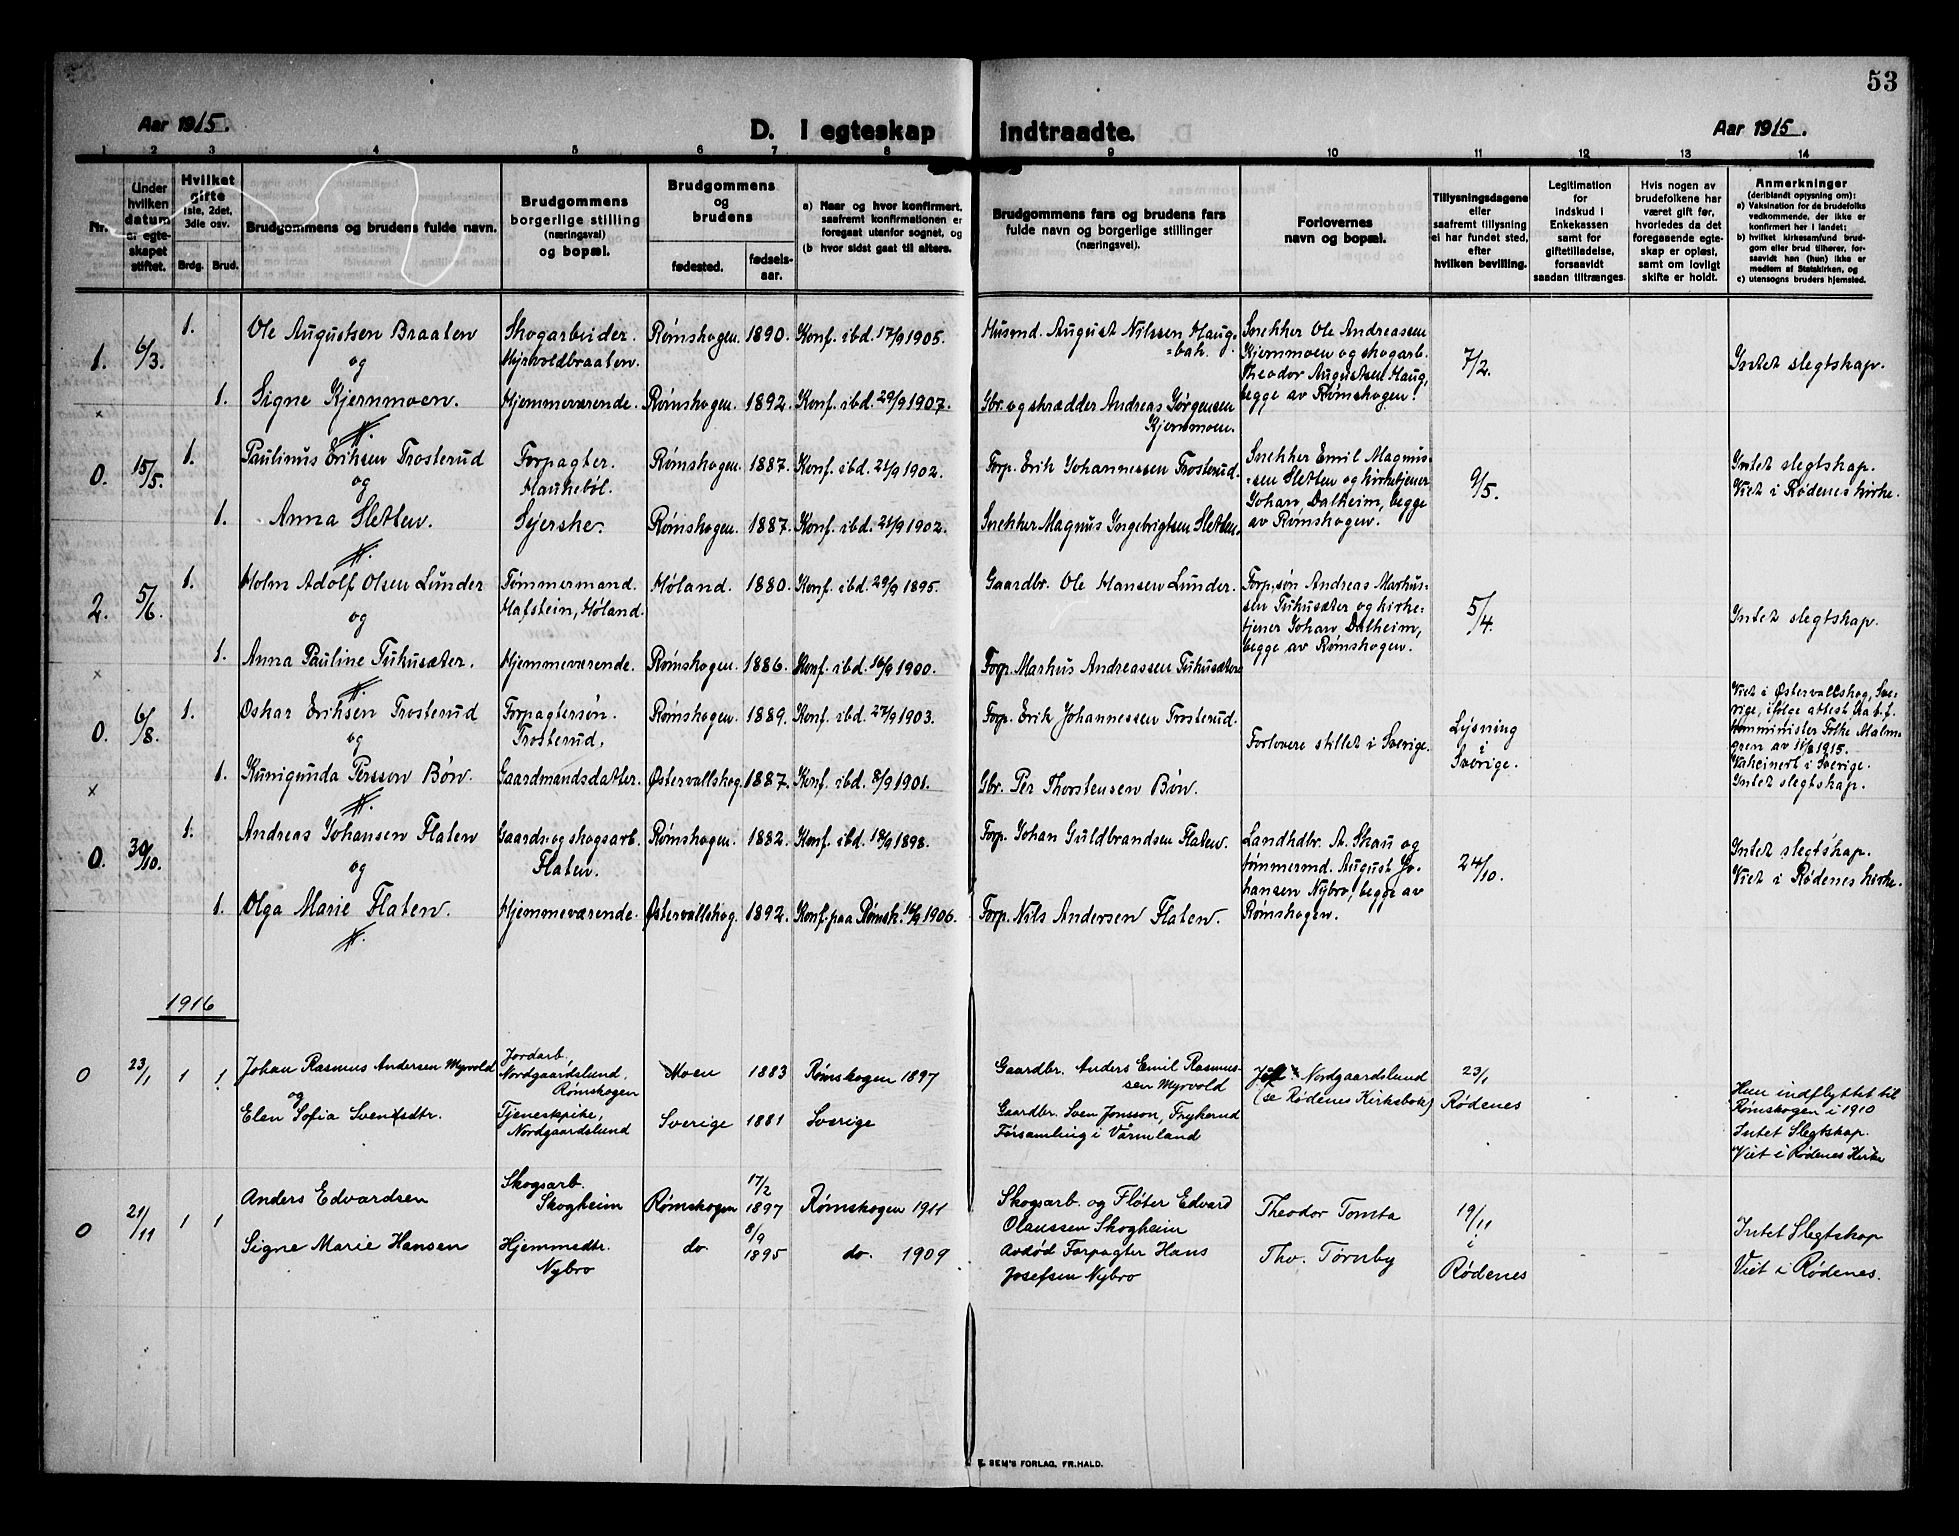 53
Aar 1915.
D. I egteskap indtraadte.
Aar 1915.
1 2 3 4 5 6 7 8 9 10 11 12 13 14
Nr.
Under
hvilken
datum
er egte-
skapet
stiftet.
Hvilket
gifte
1ste, 2det,
3die osv.
Brdg. Brud.
Brudgommens og brudens fulde navn.
Brudgommens
borgerlige stilling
(næringsvei)
og bopæl.
Brudgommens
og
brudens
fødested.
fødsels-
aar.
a) Naar og hvor konfirmert,
saafremt konfirmationen er
foregaat utenfor sognet, og
(b hvor sidst gaat til alters.
Brudgommens fars og brudens fars
fulde navn og borgerlige stillinger
(næringsvei).
Forlovernes
navn og bopæl.
Tillysningsdagene
eller
saafremt tillysning
ei har fundet sted,
efter
hvilken bevilling.
Legitimation
for
indskud i
Enkekassen
samt for
giftetilladelse,
forsaavidt
saadan tiltrænges.
Hvis nogen av
brudefolkene har
været gift før,
hvorledes da det
foregaaende egte-
skap er opløst,
samt om lovligt
skifte er holdt.
Anmerkninger
(deriblandt opjysning om):
a) Vaksination for de brudefolks
vedkommende, der ikke er
konfirmert her i landet;
b) hvilket kirkesamfund brud-
gom eller brud tilhører, for-
saavidt han (hun) ikke er
medlem af Statskirken, og
c) utensogns bruders hjemsted.
1. 6/3. 1.
Ole Augustsen Braaten
og
Skogarbeider.
Myrvoldbraaten.
Rømskogen. 1890. Konf. ibd. 17/9 1905.
Husmd. August Nilssen Haug-
=bak.
Snekker Ole Andreassen
Kjernmoen og skogarb.
Theodor Augustsen Haug,
begge av Rømskogen.
7/2.
Intet slegtskap.
x 1.
Signe Kjernmoen.
Hjemmeværende. Rømskogen. 1892. Konf. ibd. 29/9 1907.
Gbr. og skrædder Andreas Jørgensen
Kjernmoen.
0. 15/5. 1.
Paulinus Eriksen Trosterud
og
Forpagter.
Haukebøl.
Rømskogen. 1887. Konf. ibd. 21/9 1902.
Forp. Erik Johannessen Trosterud.
Snekker Emil Magnus-
=sen Sletten og kirketjener
Johan Dalheim, begge
av Rømskogen.
9/5.
Intet slegtskap.
Viet i Rødenes kirke.
1.
Anna Sletten.
Syerske. Rømskogen. 1887. Konf. ibd. 21/9 1902.
Snekker Magnus Ingebrigtsen Sletten.
2. 5/6. 1.
Holm Adolf Olsen Lunder
og
Tømmermand.
Hafstein, Høland.
Høland. 1880. Konf. ibd. 29/9 1895.
Gaardbr. Ole Hansen Lunder.
Forp.søn Andreas Markus-
sen Tukusæter og kirke-
tjener Johan Dalheim,
begge av Rømskogen.
5/4.
Intet slegtskap.
x 1.
Anna Pauline Tukusæter.
Hjemmeværende. Rømskogen. 1886. Konf. ibd. 16/9 1900.
Forp. Markus Andreassen Tukusæter
0. 6/8. 1.
Oskar Eriksen Trosterud
og
Forpagtersøn.
Trosterud.
Rømskogen. 1889. Konf. ibd. 27/9 1903.
Forp. Erik Johannessen Trosterud.
Forlovere stillet i Sverige.
Lysning
i
Sverige.
Viet i Østervallskog, Sve-
rige, ifølge attest fra b.f.
komminister Folke Malm-
gren av 11/8 1915.
Vakcinert i Sverige.
Intet slegtskap.
x 1.
Kunigunda Persson Bön.
Gaardmandsdatter. Østervallskog. 1887. Konf. ibd. 8/9 1901.
Gbr. Per Thorstensen Bön.
0. 30/10. 1.
Andreas Johansen Flaten
og
Gaards- og skogsarb.
Flaten.
Rømskogen. 1882. Konf. ibd. 18/9 1898.
Forp. Johan Guldbrandsen Flaten.
Landhdbr. A. Skau og
tømmermd. August Jo-
hansen Nybro, begge av
Rømskogen.
24/10.
Intet slegtskap.
Viet i Rødenes kirke.
1.
Olga Marie Flaten.
Hjemmeværende. Østervallskog. 1892. Konf. paa Rømsk. 16/9 1906.
Forp. Nils Andersen Flaten.
1916
0 23/1 1 1
Johan Rasmus Andersen Myrvold
og
Elen Sofia Svensdtr.
Jordarb.
Nordgaardslund.
Rømskogen
Tjenestpike,
Nordgaardslund
Moen 1883 Rømskogen 1897
Sverige 1881 Sverige
Gaardbr. Anders Emil Rasmus-
sen Myrvold
Gaardbr. Sven Jonsson, Trykerud
Församling i Värmland
Nordgaardslund
(se Rødenes Kirkebok)
23/1
Rødenes
Hun indflyttet til
Rømskogen i 1910
Intet Slegtskap.
Viet i Rødenes Kirke
0 21/11 1 1
Anders Edvardsen
Signe Marie Hansen
Skogsarb.
Skogheim
Hjemmedtr.
Nybro
Rømskogen 17/2 1897 Rømskogen 1911
do 8/9 1895 do. 1909
Skogsarb. og Fløter Edvard
Olaussen Skogheim
Avdød Forpagter Hans
Josefsen Nybro
Theodor Tomta
Thv. Tørnby
19/11
i
Rødenes
Intet Slegtskap
Viet i Rødenes.
E. SEM'S FORLAG, FR.HALD.